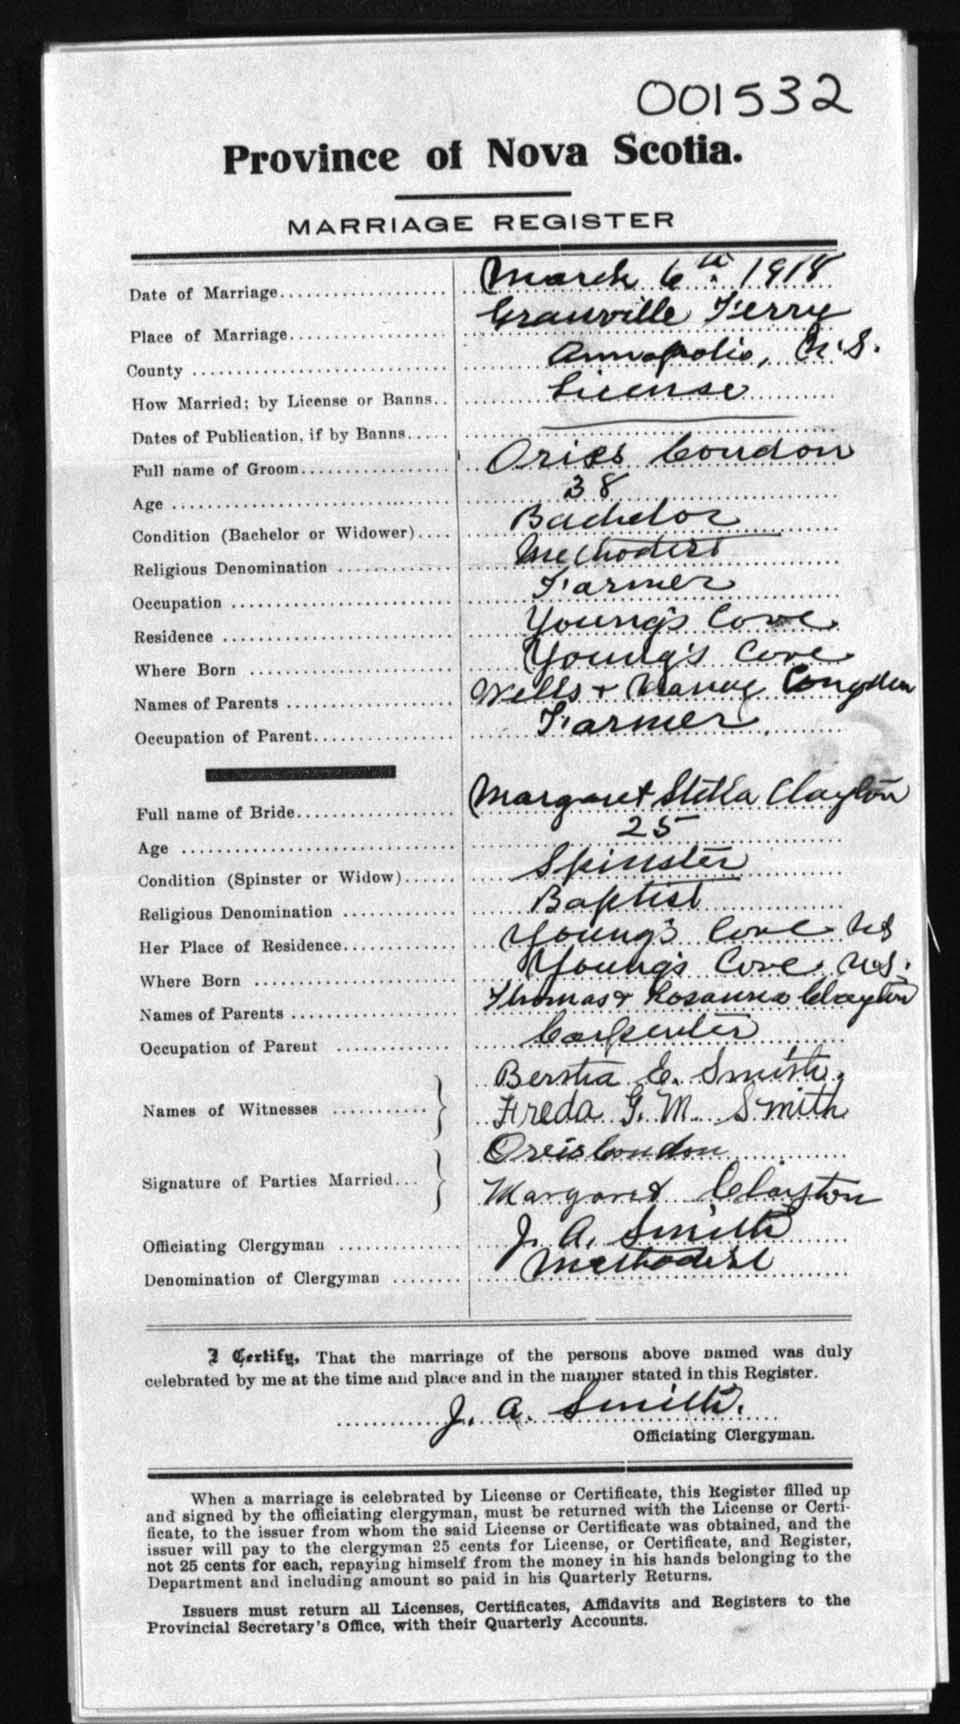 001532
Province of Nova Scotia.
MARRIAGE REGISTER
Date of Marriage March 6th. 1918
Place of Marriage Granville Ferry
County Annapolis, N.S.
How Married; by License or Banns License
Dates of Publication, if by Banns
Full name of Groom Ories Condon
Age 38
Condition (Bachelor or Widower) Bachelor
Religious Denomination Methodist
Occupation Farmer
Residence Young's Cove
Where Born Young's Cove
Names of Parents Wells + Congdon
Occupation of Parent Farmer
Full name of Bride Margaret Stella Clayton
Age 25
Condition (Spinster or Widow) Spinster
Religious Denomination Baptist
Her Place of Residence Young's Cove NS
Where Born Young's Cove N.S.
Names of Parents Thomas + Rosanna Clayton
Occupation of Parent Carpenter
Names of Witnesses } Bertha E. Smith.
Freda G. M. Smith
Signature of Parties Married } Oreis Condon
Margaret Clayton
Officiating Clergyman J. A. Smith
Denomination of Clergyman Methodist
I Certify, That the marriage of the persons above named was duly
celebrated by me at the time and place and in the manner stated in this Register.
J. A. Smith.
Officiating Clergyman.
When a marriage is celebrated by License or Certificate, this Register filled up
and signed by the officiating clergyman, must be returned with the License or Certi-
ficate, to the issuer from whom the said License or Certificate was obtained, and the
issuer will pay to the clergyman 25 cents for License, or Certificate, and Register,
not 25 cents for each, repaying himself from the money in his hands belonging to the
Department and including amount so paid in his Quarterly Returns.
Issuers must return all Licenses, Certificates, Affidavits and Registers to the
Provincial Secretary's Office, with their Quarterly Accounts.